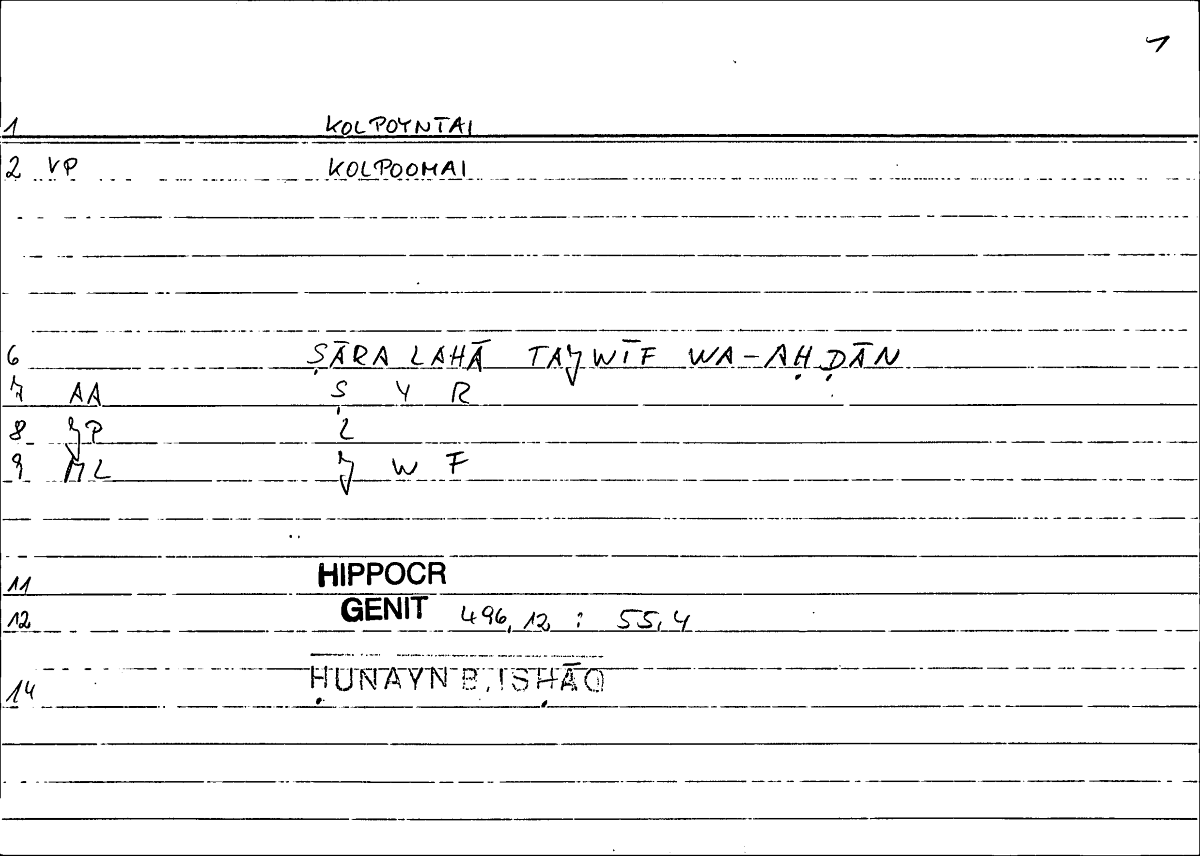 1
1 KOLPOYNTAI
2 VP KOLPOOMAI
6 ṢĀRA LAHĀ TAJWĪF WA-AḤḌĀN
7 AA Ṣ Y R
8 JP L
9 ML J W F
11 HIPPOCR
12 GENIT 496,12 : 55,4
14 ḤUNAYN B.ISḤĀQ